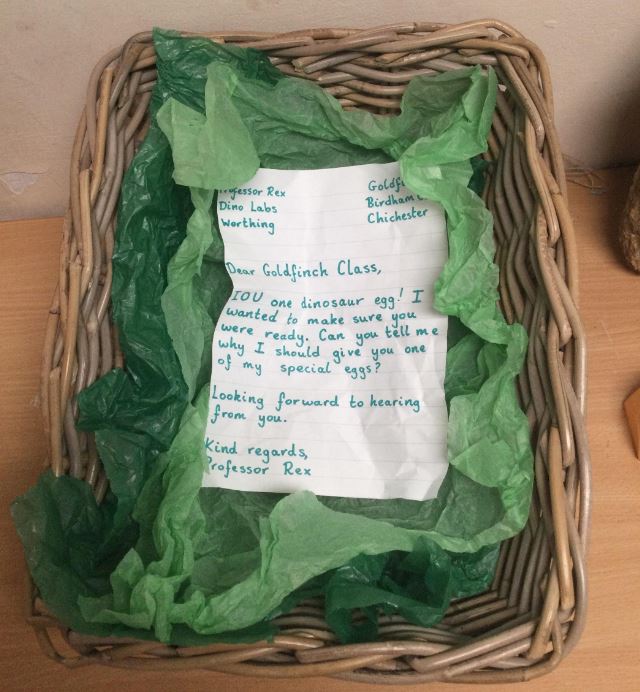 Professor Rex
Dino Labs
Worthing
Birdham
Chichester
Dear Goldfinch Class,
IOU one dinosaur egg! I
wanted to make sure you
were ready. Can you tell me
why I should give you one
of my special eggs?
Looking forward to hearing
from you.
Kind regards,
Professor Rex